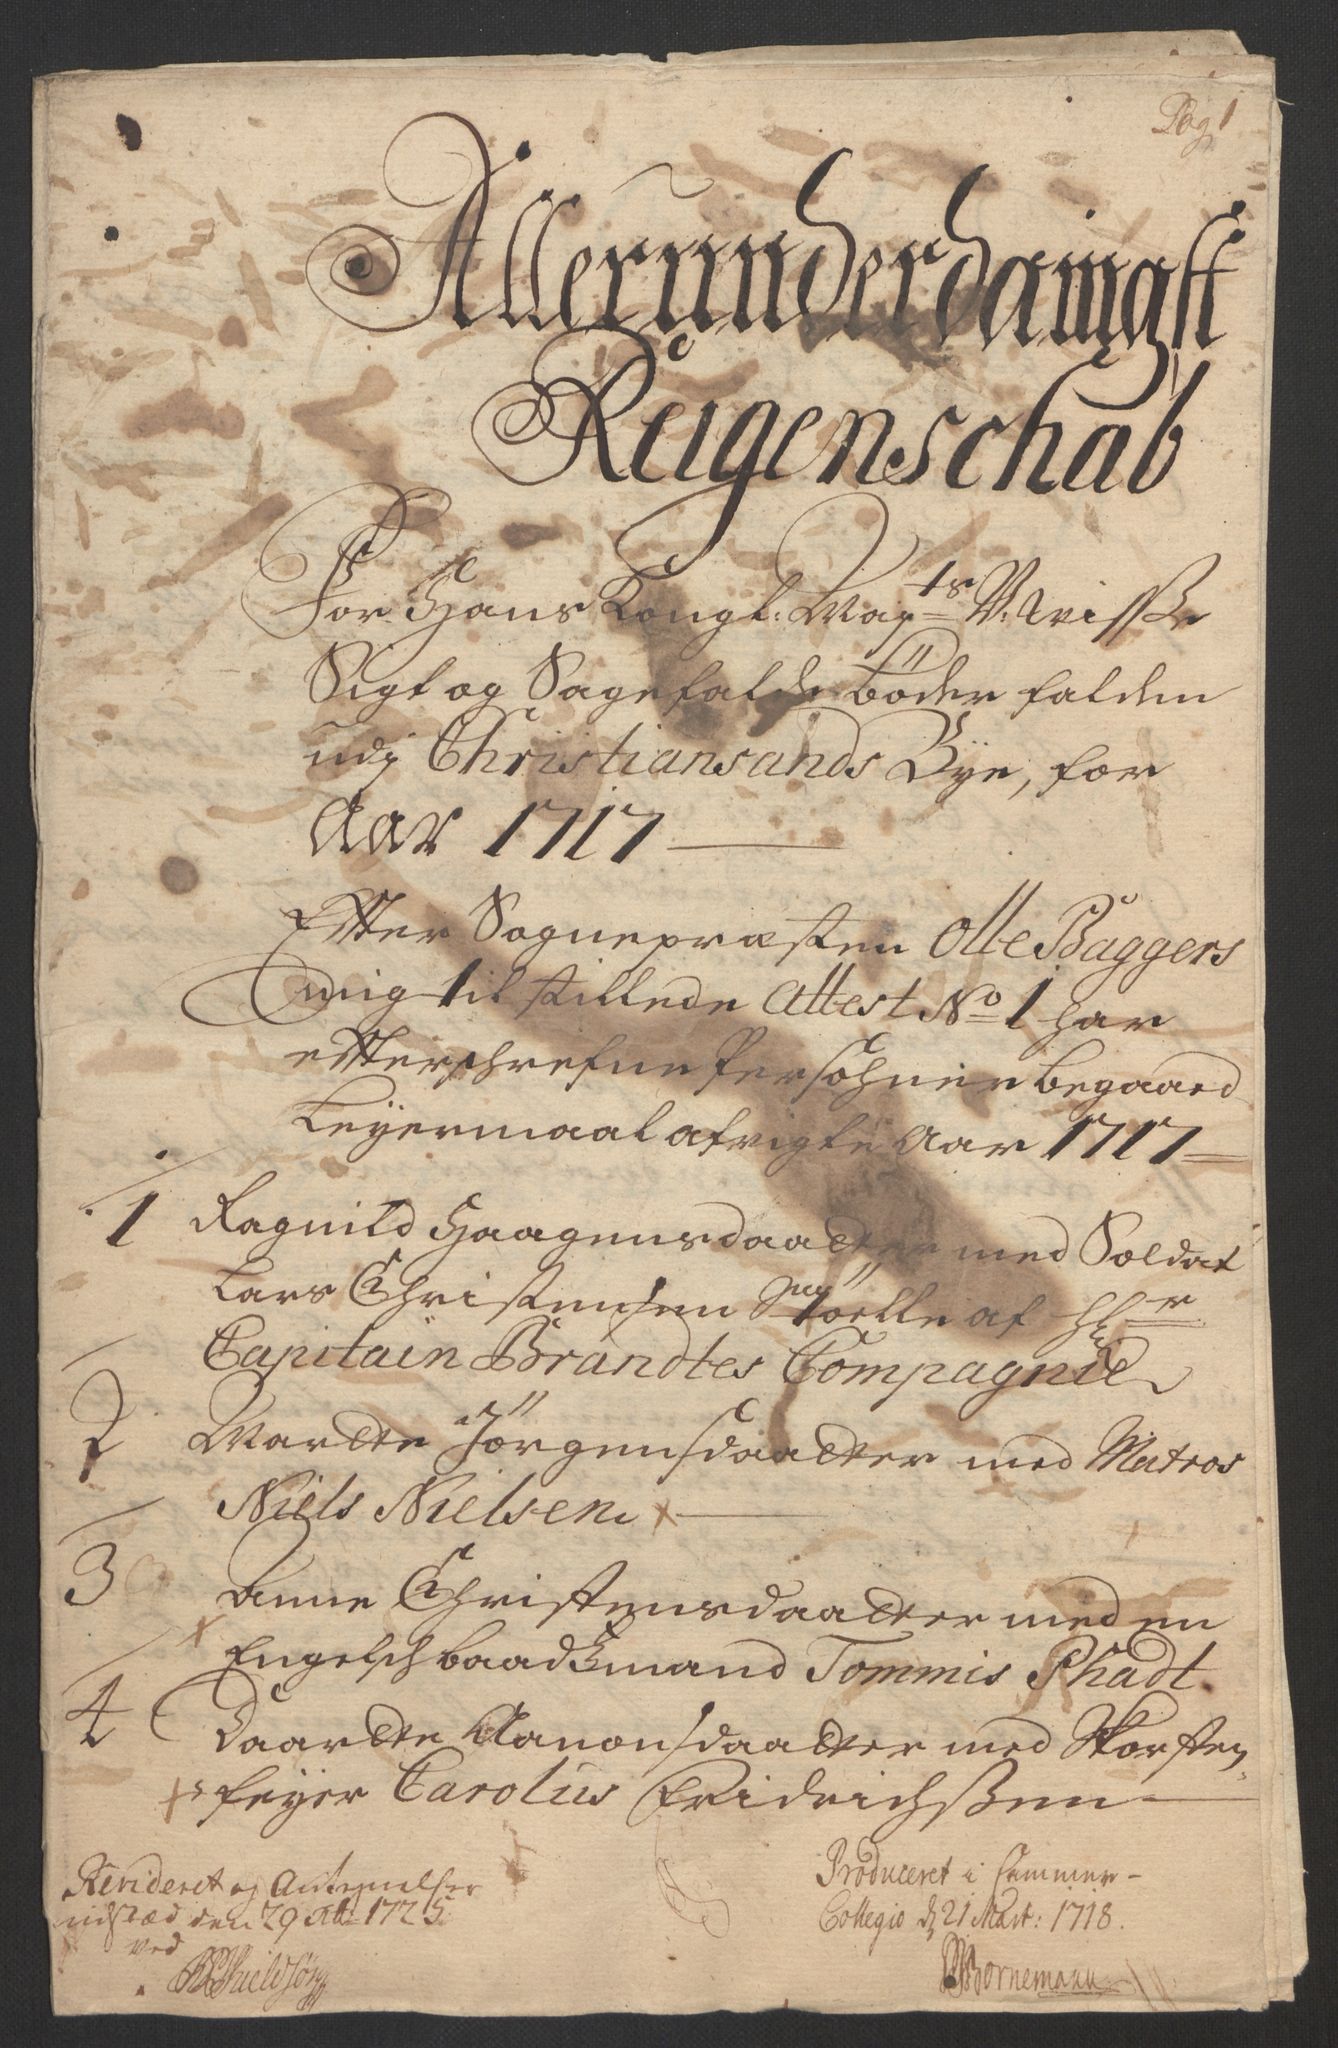 Pag 1
Allerunderdanigst
Reigenschab
For Hans Kongl: Mayts U-visse
Sigt og Sagefalds bøder falden
udj Christiansands Bye, for
Aar 1717
Efter Sognepræsten Olle Baggers
mig tilstillede Attest No 1 har
efterschrefne Persohner begaaed
Leyermaal afvigte Aar 1717
1 Ragnild Haagensdaatter med Soldat
Lars Christensen af Hr
Capitain Brandtes Compagnie
2 Marthe Jørgensdaatter med Matros
Niels Nielsen
3 Anne Christensdaatter med en
Engelsch baadsmand Tommis Phadt
4 Daarthe Aanonsdaatter med Skorsten
feyer Carolus Fridrichssen
Revideret og Antegnelser
udstæd den 29 1725
ved
Produceret i Cammer-
Collegio d 21 Mart: 1718.
Bornemann